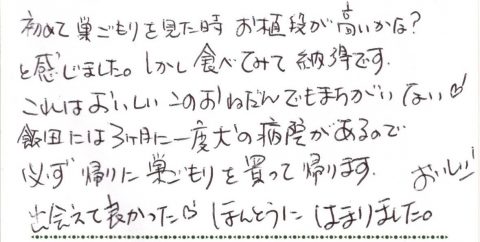 初めて巣ごもりを見た時 お値段が高いかな？
と感じました。しかし食べてみて納得です。
これはおいしい このおねだんでもまちがいない♡
飯田には3ヶ月に一度犬の病院があるので
必ず帰りに巣ごもりを買って帰ります。
おいしい!
出会えて良かった♡ ほんとうに はまりました。